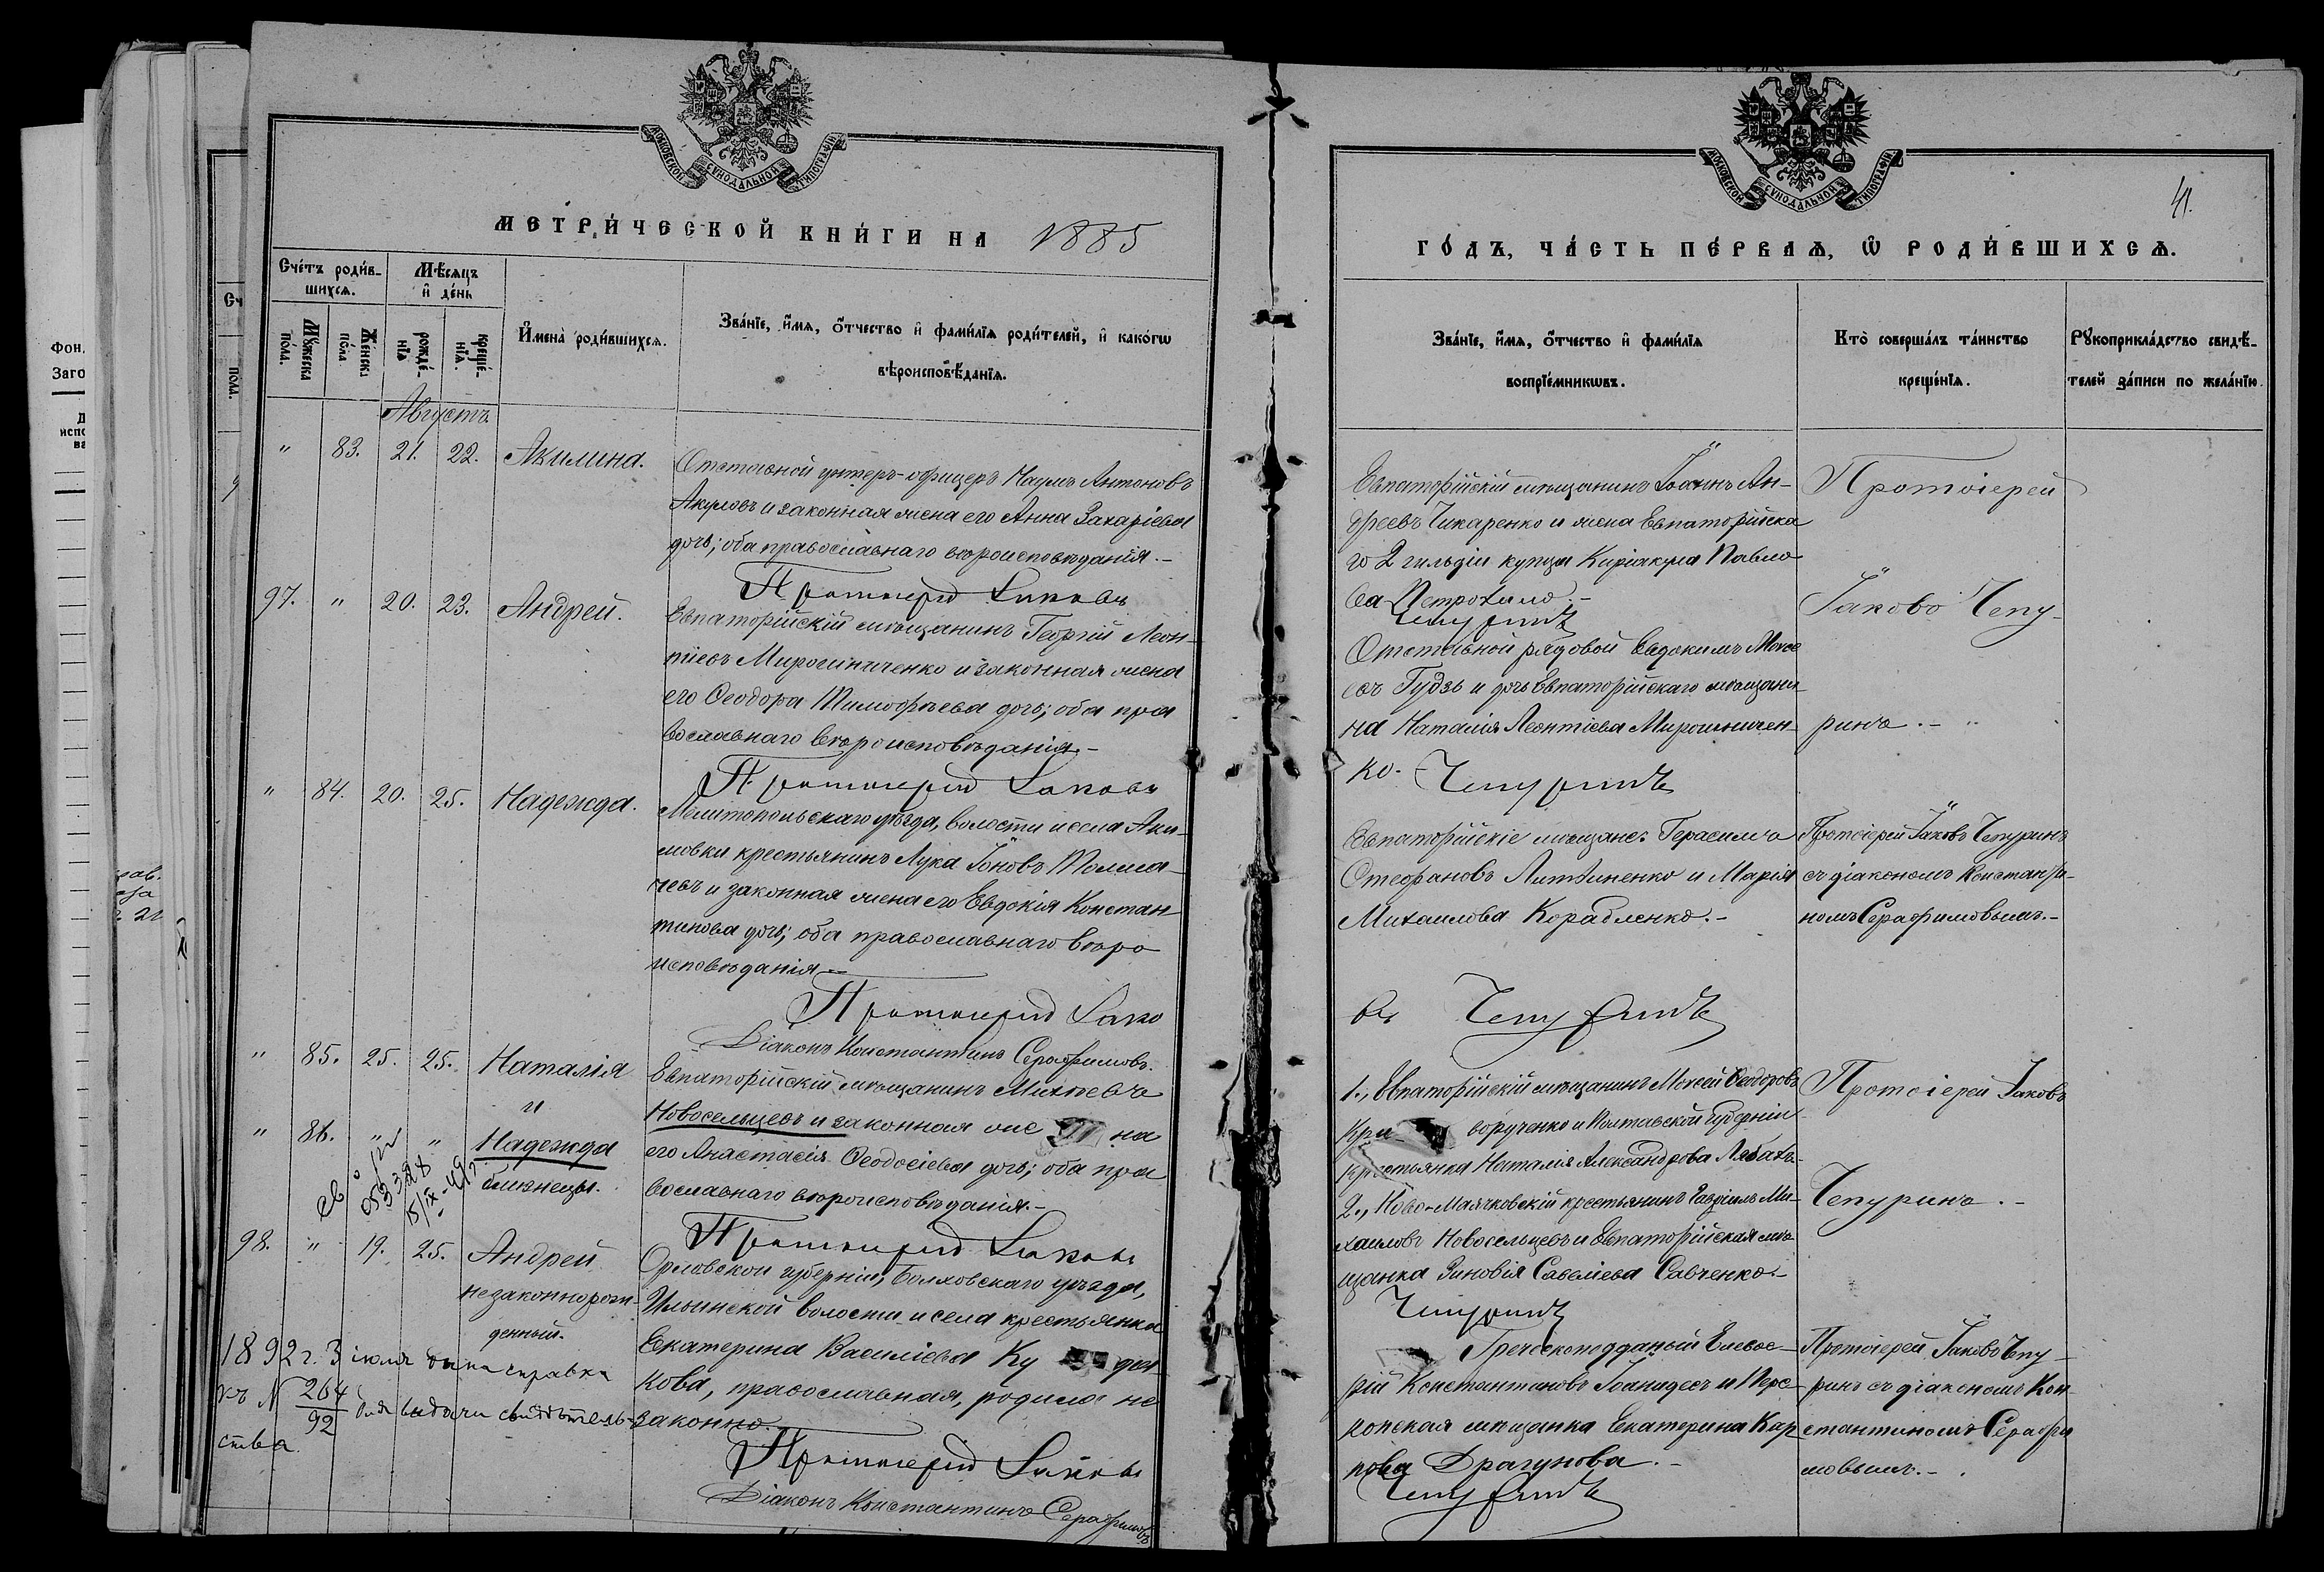 МОСКОВСКОЙ СѴНОДАЛЬНОЙ ТИПОГРАФІИ
МЕТРИ́ЧЕСКОЙ КНИ́ГИ НА 1885
Сче́тъ роди́в-
шихсѧ.
Мѣ́сѧцъ
и҆ де́нь
Мꙋ́жеска
по́ла.
Же́нска
по́ла.
рожде́-
нїѧ
креще́-
нїѧ.
И҆мена̀ роди́вшихсѧ.
Зва́нїе, и҆́мѧ, ѻ҆́тчество и҆ фами́лїѧ роди́телей, и҆ како́гѡ
вѣроисповѣ́данїѧ.
Августъ
" 83. 21. 22. Акилина.
Отставной унтеръ-офицеръ Наумъ Антоновъ
Акуловъ и законная жена его Анна Захаріева
дочь; оба православнаго вѣроисповѣданія.-
Протоіерей Іаковъ
97. " 20. 23. Андрей.
Евпаторійскій мѣщанинъ Георгій Леон-
тіевъ Мирошниченко и законная жена
его Ѳеодора Тимофѣева дочь; оба пра
вославнаго вѣроисповѣданія.-
Протоіерей Іаковъ
" 84. 20. 25. Надежда.
Мелитопольскаго уѣзда, волости и села Аки-
мовки крестьянинъ Лука Іоновъ Толма-
чевъ и законная жена его Евдокія Констан
тинова дочь; оба православнаго вѣро
исповѣданія.-
Протоіерей Іако
Діаконъ Константинъ Серафимовъ.
" 85. 25. 25. Наталія
и
" 86. " " Надежда
близнецы.
Евпаторійскій мѣщанинъ Михѣевъ
Новосельцевъ и законная же на
его Анастасія Ѳеодосіева дочь; оба пра
вославнаго вѣроисповѣданія.-
Протоіерей Іаковъ
98. " 19. 25. Андрей
незаконнорож-
денный.
Орловской губерніи, Болховскаго уѣзда,
Ильинской волости и села крестьянка
Екатерина Василіева Ку
кова, православная, родила не
законно.
Протоіерей Іаковъ
Діаконъ Константинъ Серафимовъ
1892 г. 3 іюля дана справка
къ N 264/92 для выдачи свидѣтель-
ства.
МОСКОВСКОЙ СѴНОДАЛЬНОЙ ТИПОГРАФІИ
41.
ГО́ДЪ, ЧА́СТЬ ПЕ́РВАѦ, Ѡ҆ РОДИ́ВШИХСѦ.
Зва́нїе, и҆́мѧ, ѻ҆́тчество и҆ фами́лїѧ
воспрїе́мникѡвъ.
Кто̀ соверша́лъ та́инство
креще́нїѧ.
Рꙋкоприкла́дство свидѣ́-
телей за́писи по жела́нїю.
Евпаторійскій мѣщанинъ Іоаннъ Ан-
дреевъ Чикаренко и жена Евпаторійска
го 2 гильдіи купца Киріакула Павло
ва Петрохило.-
Чепуринъ
Протоіерей
Іаковъ Чепу-
ринъ.-
Отставной рядовой Евдокимъ Моисе
евъ Гудзь и дочь Евпаторійскаго мѣщани
на Наталія Леонтіева Мирошничен-
ко.- Чепуринъ
Евпаторійскіе мѣщане: Герасимъ
Стефановъ Литвиненко и Марія
Михаилова Корабленко.-
въ Чепуринъ
Протоіерей Іаковъ Чепуринъ
съ діакономъ Константи-
номъ Серафимовымъ.-
1., Евпаторійскій мѣщанинъ Моисей Ѳеодоровъ
Кри ворученко и Полтавской губерніи
крестьянка Наталія Александрова
2., Ново-Маячковскій крестьянинъ Гавріилъ Ми-
хаиловъ Новосельцевъ и Евпаторійская мѣ
щанка Зиновія Савеліева Савченко.-
Чепуринъ
Протоіерей Іаковъ
Чепуринъ.-
Греческоподданый Елевѳе-
рій Константиновъ Іоанидесъ и Пере-
копская мѣщанка Екатерина Кар
пова Драгунова.-
Чепуринъ
Протоіерей Іаковъ Чепу-
ринъ съ діакономъ Кон-
стантиномъ Серафи
мовымъ.-